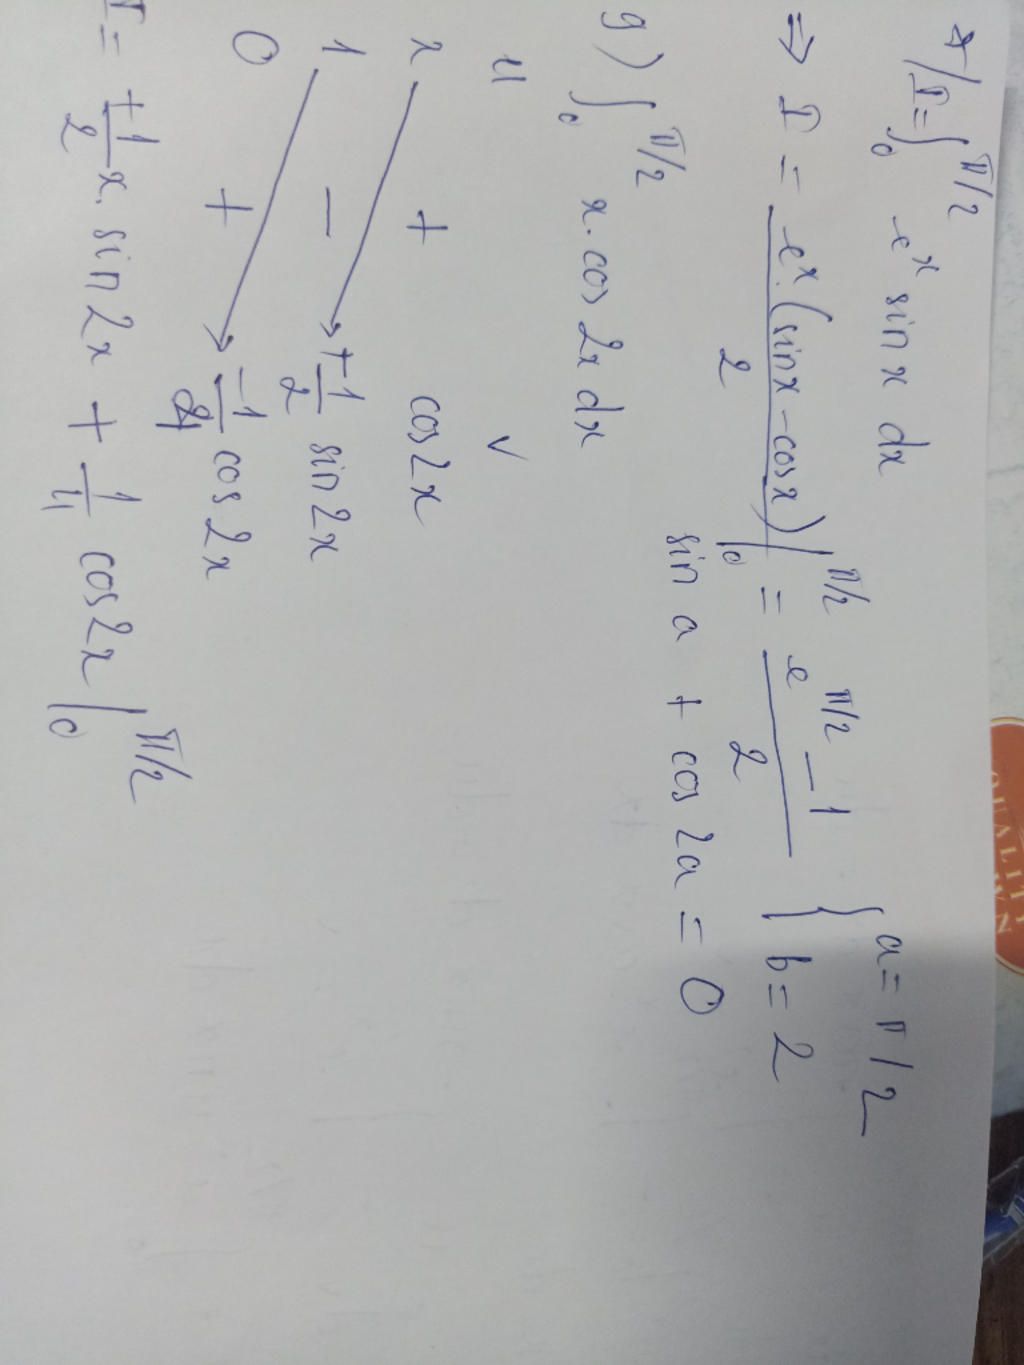 7/ I = ∫₀^π/2 eˣ sin x dx
{ a = π/2
⇒ I = eˣ.(sinx - cosx)/2 |₀^π/2 = (e^π/2 - 1)/2 { b = 2
sin a + cos 2a = 0
9) ∫₀^π/2 x.cos 2x dx
u v
x + cos2x
1 - +1/2 sin2x
0 + -1/4 cos2x
I = +1/2 x. sin2x + 1/4 cos2x |₀^π/2
QUALITY